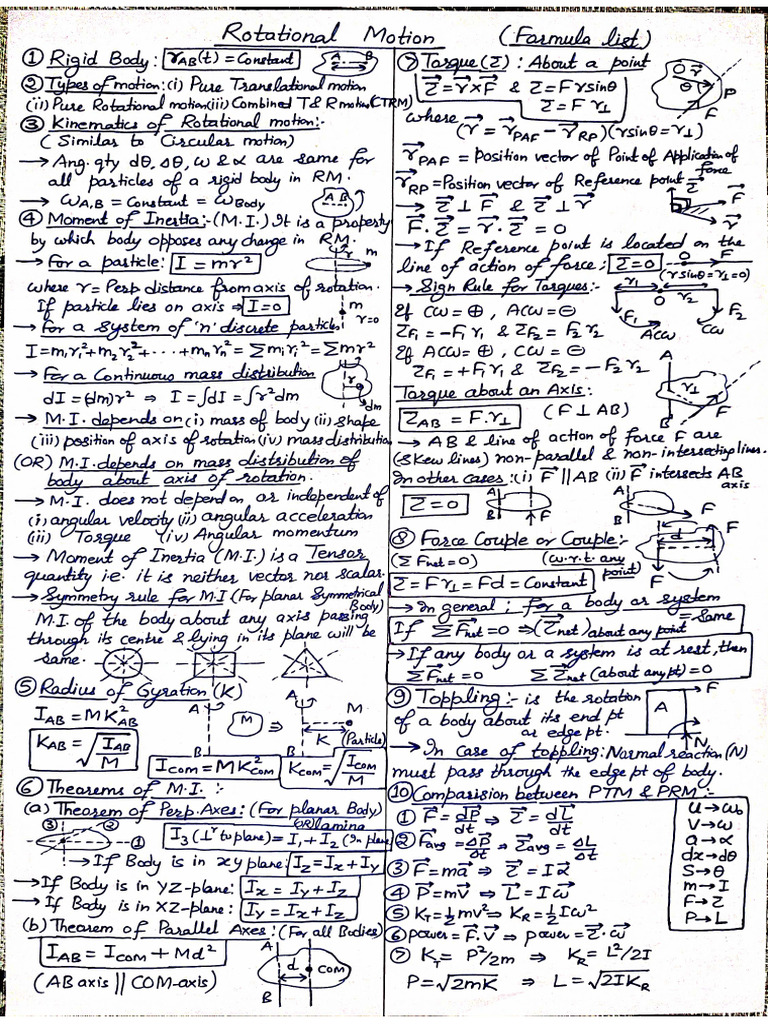 Rotational Motion (Formula list)
① Rigid Body: r_AB(t) = Constant A B
② Types of motion: (i) Pure Translational motion
(ii) Pure Rotational motion (iii) Combined T & R motion (CTRM)
③ Kinematics of Rotational motion:-
(Similar to Circular motion)
→ Ang. qty dθ, Δθ, ω & α are same for
all particles of a rigid body in RM.
→ ω_A,B = Constant = ω_Body A B
④ Moment of Inertia:- (M.I.) It is a property
by which body opposes any change in RM.
→ For a particle: I = mr² r m
where r = Perp distance from axis of rotation.
If particle lies on axis ⇒ I = 0 m r=0
→ For a system of 'n' discrete particles
I = m₁r₁² + m₂r₂² + ... + mₙrₙ² = Σmᵢrᵢ² = Σmr²
→ For a Continuous mass distribution
dI = (dm)r² ⇒ I = ∫dI = ∫r²dm r dm
→ M.I. depends on (i) mass of body (ii) shape
(iii) position of axis of rotation (iv) mass distribution
(OR) M.I. depends on mass distribution of
body about axis of rotation.
→ M.I. does not depend on or independent of
(i) angular velocity (ii) angular acceleration
(iii) Torque (iv) Angular momentum
→ Moment of Inertia (M.I.) is a Tensor
quantity i.e. it is neither vector nor scalar.
→ Symmetry rule for M.I (For planar Symmetrical Body)
M.I. of the body about any axis passing
through its centre & lying in its plane will be
same.
⑤ Radius of Gyration (K) A A
I_AB = MK²_AB M ⇒ K M (Particle)
K_AB = √(I_AB/M) B B
I_COM = MK²_COM K_COM = √(I_COM/M)
⑥ Theorems of M.I.:-
(a) Theorem of Perp. Axes: (For planar Body)
(OR) lamina
③ ② ① I₃ (⊥ʳ to plane) = I₁ + I₂ (In plane)
→ If Body is in xy plane: I_Z = I_x + I_Y
→ If Body is in YZ-plane: I_x = I_Y + I_Z
→ If Body is in XZ-plane: I_Y = I_x + I_Z
(b) Theorem of Parallel Axes: (For all Bodies)
I_AB = I_COM + Md² A d COM
(AB axis || COM-axis) B
⑦ Torque (τ): About a point
τ⃗ = r⃗ × F⃗ & τ = F r sinθ O r⃗ θ P
τ = F r⊥ F
where (r⃗ = r⃗_PAF − r⃗_RP) (r sinθ = r⊥)
r⃗_PAF = position vector of Point of Application of force
r⃗_RP = Position vector of Reference point
→ τ⃗ ⊥ F⃗ & τ⃗ ⊥ r⃗ τ⃗ F⃗ r⃗
F⃗. τ⃗ = r⃗. τ⃗ = 0
→ If Reference point is located on the
line of action of force; τ = 0 O F (r sinθ = r⊥ = 0)
→ Sign Rule for Torques:- r₁ O r₂
If CW = ⊕, ACW = ⊖ F₁ F₂
τ_F1 = −F₁r₁ & τ_F2 = F₂r₂ ACW CW
If ACW = ⊕, CW = ⊖
τ_F1 = +F₁r₁ & τ_F2 = −F₂r₂ A
Torque about an Axis: r⊥
τ_AB = F.r⊥ (F ⊥ AB) B F
→ AB & line of action of force F are
(Skew lines) non-parallel & non-intersecting lines.
In other cases: (i) F⃗ || AB (ii) F⃗ intersects AB axis
τ = 0 A B F A B F
⑧ Force Couple or Couple:- F d
(ΣF_net = 0) (w.r.t. any point)
τ = F r⊥ = Fd = Constant F
→ In general; for a body or system
If ΣF⃗_net = 0 ⇒ (τ⃗_net) about any point = same
→ If any body or a system is at rest, then
ΣF⃗_net = 0 Στ⃗_net (about any pt) = 0
⑨ Toppling:- is the rotation A F
of a body about its end pt
or edge pt. N
→ In case of toppling: Normal reaction (N)
must pass through the edge pt of body.
⑩ Comparision between PTM & PRM:-
① F⃗ = dP⃗/dt ⇒ τ⃗ = dL⃗/dt
② F⃗avg = ΔP⃗/Δt ⇒ τ⃗avg = ΔL⃗/Δt
③ F⃗ = ma⃗ ⇒ τ⃗ = Iα⃗
④ P⃗ = mv⃗ ⇒ L⃗ = Iω⃗
⑤ K_T = ½mv² ⇒ K_R = ½Iω²
⑥ power = F⃗.V⃗ ⇒ power = τ⃗.ω⃗
⑦ K_T = P²/2m ⇒ K_R = L²/2I
P = √2mK ⇒ L = √2IK_R
u → ω₀
V → ω
a → α
dx → dθ
S → θ
m → I
F → τ
P → L